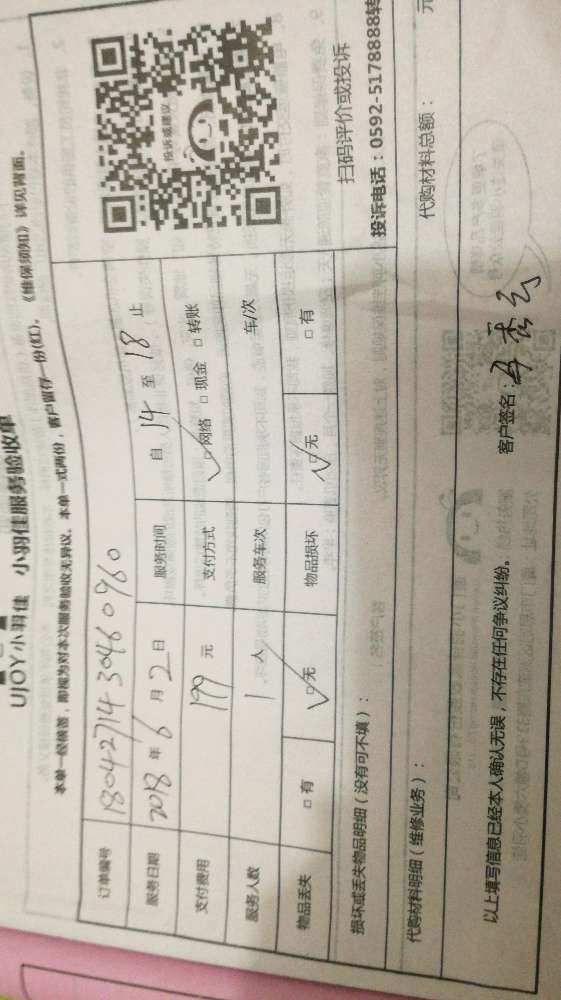 UJOY小羽佳 小羽佳服务验收单
本单一经候签，即视为对本次服务验收无异议。本单一式两份，客户留存一份(红)。 《维保须知》详见背面。
订单编号 18042714 30460960
服务日期 2018 年 6 月 2 日 服务时间 自 14 至 18 止
支付费用 199 元 支付方式 ☑网络 □现金 □转账
服务人数 1 人 服务车次 车/次
物品丢失 □有 ☑无 物品损坏 ☑无 □有
投诉或建议
扫码评价或投诉
投诉电话：0592-5178888转
损坏或丢失物品明细（没有可不填）：
代购材料明细（维修业务）： 代购材料总额： 元
以上填写信息已经本人确认无误，不存在任何争议纠纷。 客户签名：